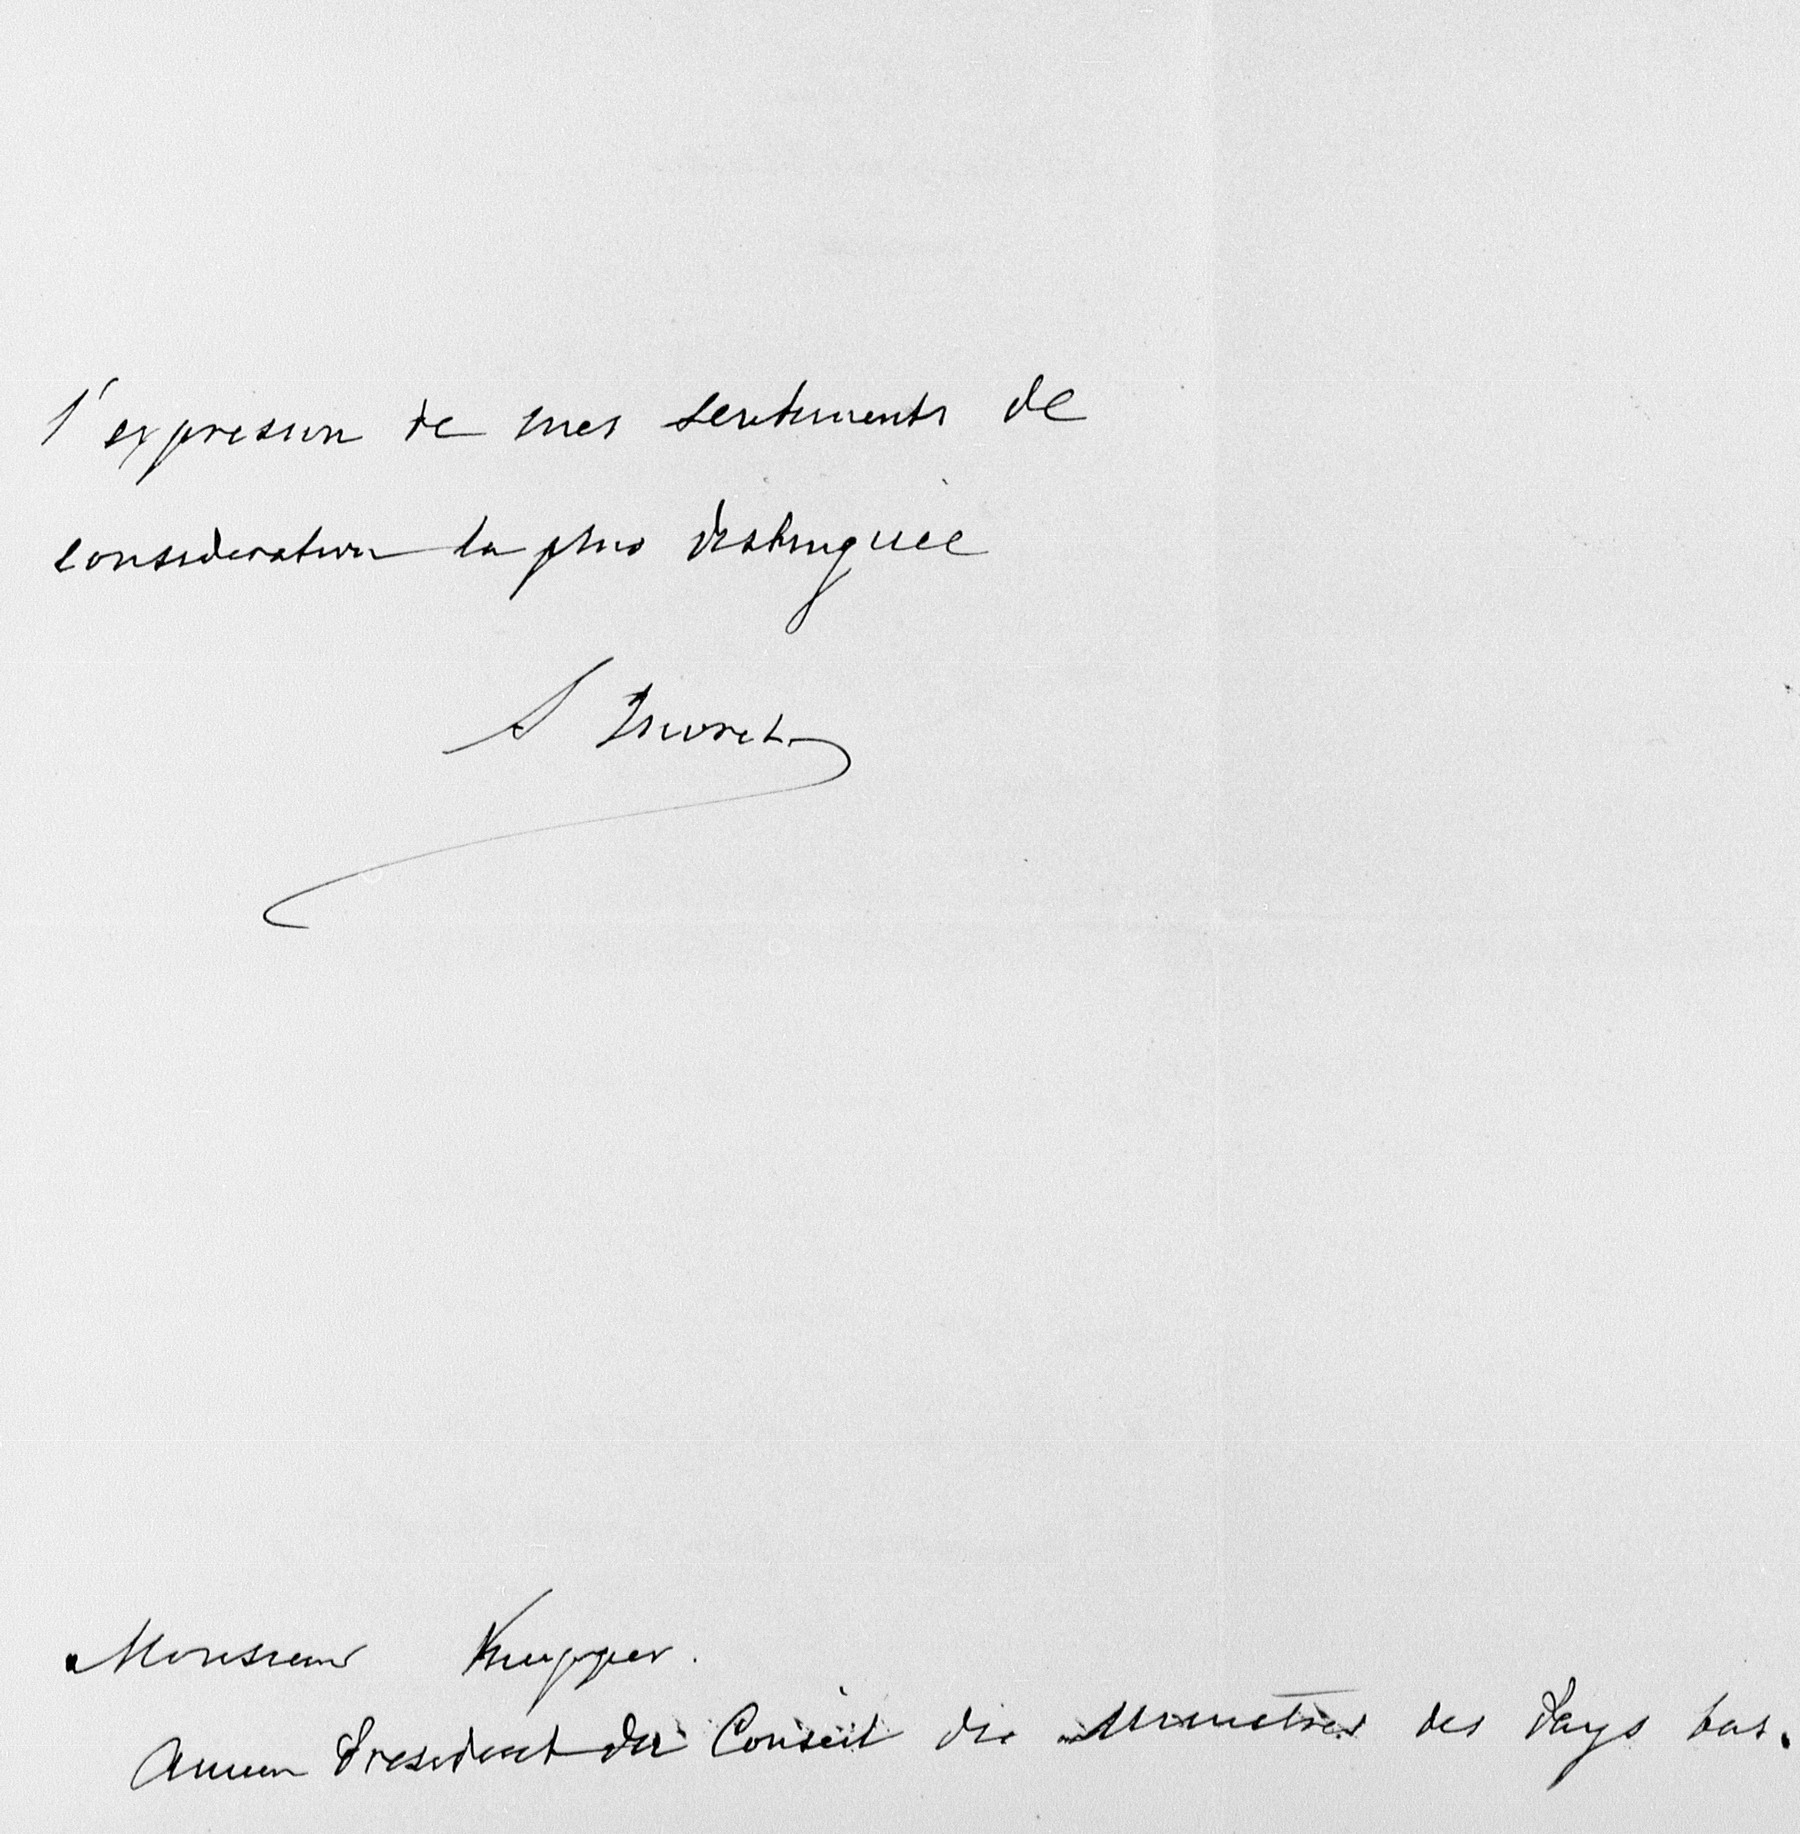 l'expression de mes sentiments de
consideration la plus distinguèe
S Moret
Monsieur Kuypper.
Ancien President du Conseil des Ministres des Pays bas.